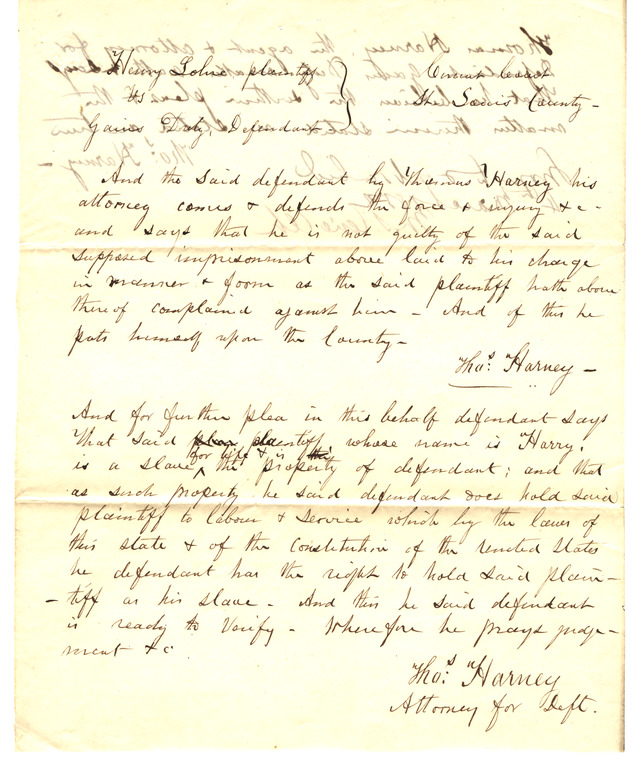 Henry Johns plaintiff } Circuit Court
vs St Louis County -
Gaines Doty, Defendant
And the said defendant by Thomas Harney his
attorney comes & defends the force & injury &c -
and says that he is not guilty of the said
supposed imprisonment above laid to his charge
in manner & form as the said plaintiff hath above
thereof complained against him - And of this he
puts himself upon the County -
Thos. Harney -
And for further plea in this behalf defendant says
That said plaintiff whose name is Harry,
for life & is
is a slave ^ the property of defendant; and that
as such property he said defendant does hold said
plaintiff to labour & service which by the laws of
this state & of the constitution of the united States
he defendant has the right to hold said plain-
-tiff as his slave - And this he said defendant
is ready to Verify - Wherefore he prays judge-
ment &c
Thos. Harney
Attorney for Deft.